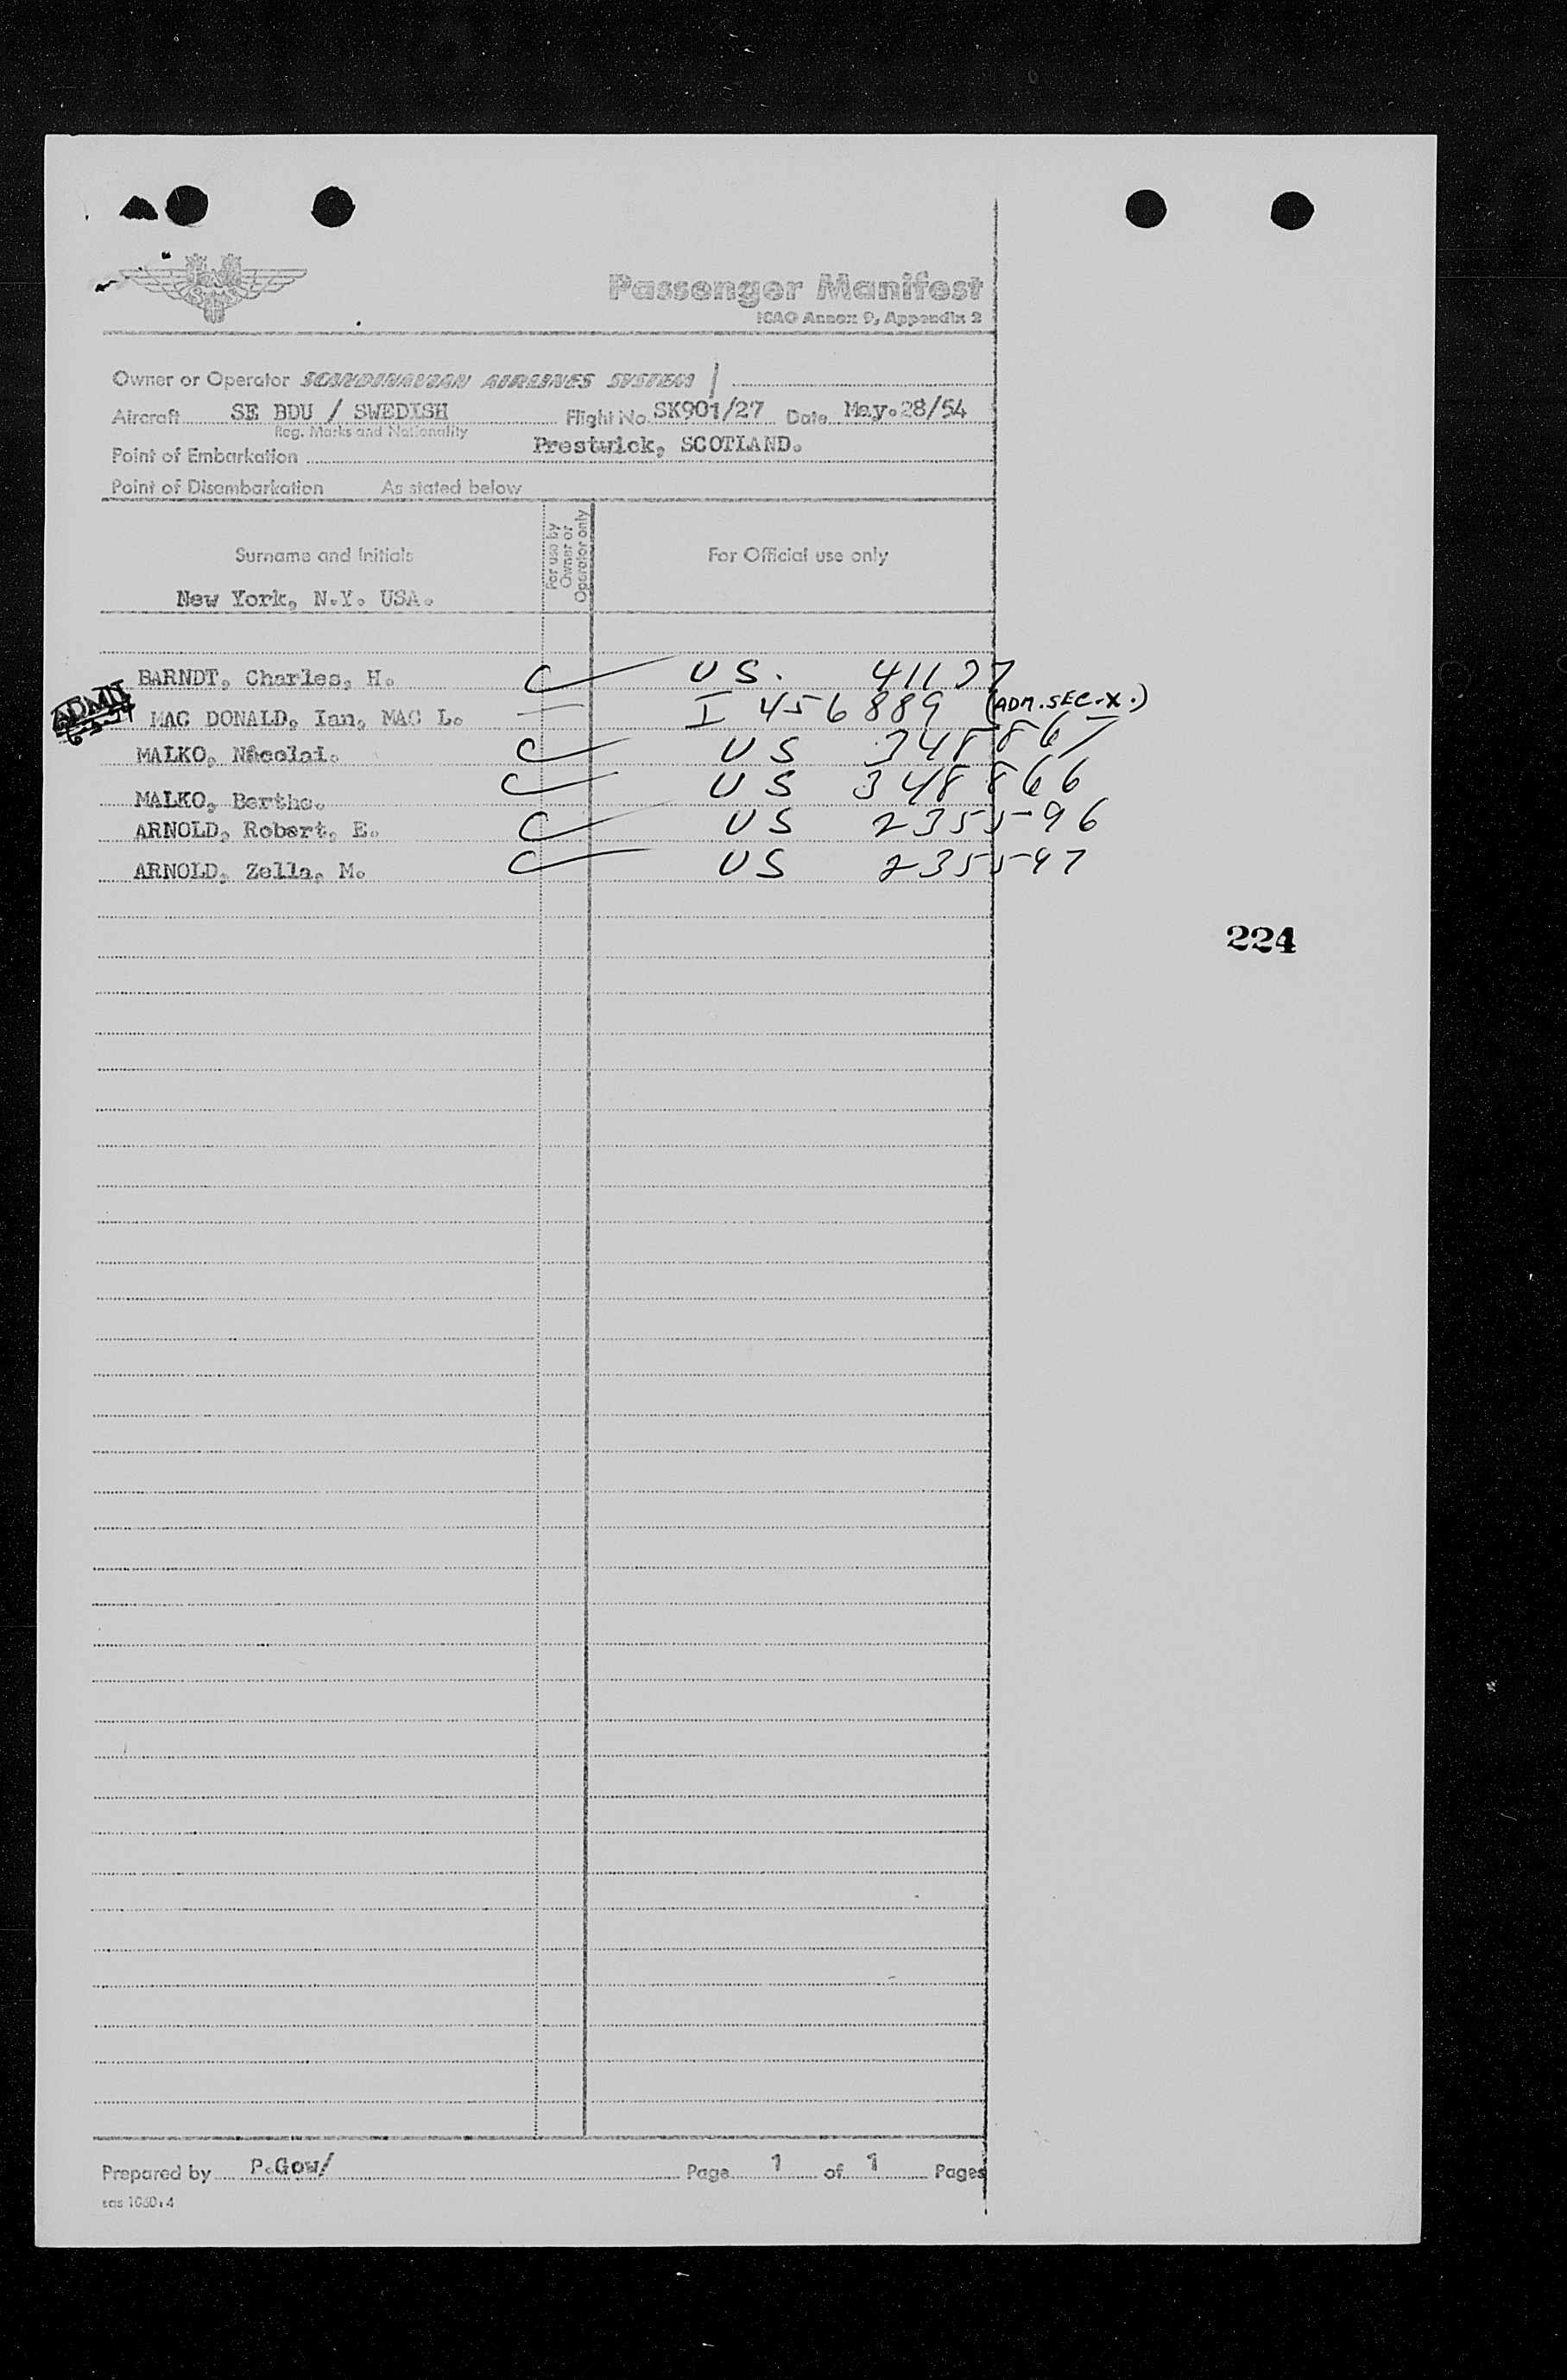 Passenger Manifest
ICAO Annex 9, Appendix 2
Owner or Operator SCANDINAVIAN AIRLINES SYSTEM
Aircraft SE BDU / SWEDISH Flight No. SK901/27 Date May.28/54
Reg. Marks and Nationality
Point of Embarkation Prestwick, SCOTLAND.
Point of Disembarkation As stated below
Surname and Initials For use by Owner or Operator only For Official use only
New York, N.Y. USA.
BARNDT, Charles, H. US. 41137
ADMIT MAC DONALD, Ian, MAC L. I 456889 (ADM. SEC-X.)
MALKO, Nicolai. US 348867
MALKO, Berthe. US 348866
ARNOLD, Robert, E. US 235596
ARNOLD, Zella, M. US 235597
224
Prepared by P.Gow/ Page 1 of 1 Pages
sas 1060:4